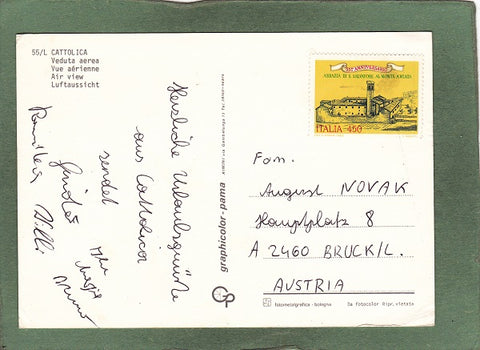 55/L CATTOLICA
Veduta aerea
Vue aérienne
Air view
Luftaussicht
Herzliche Urlaubsgrüsse
aus Cattolica
sendet
Familie
Willi
graphicolor-pama
950° ANNIVERSARIO
ABBAZIA DI S. SALVATORE AL MONTE AMIATA
ITALIA 450
Fam.
August NOVAK
Hauptplatz 8
A 2460 BRUCK/L.
AUSTRIA
fotometalgrafica - bologna
Da fotocolor Ripr. vietata